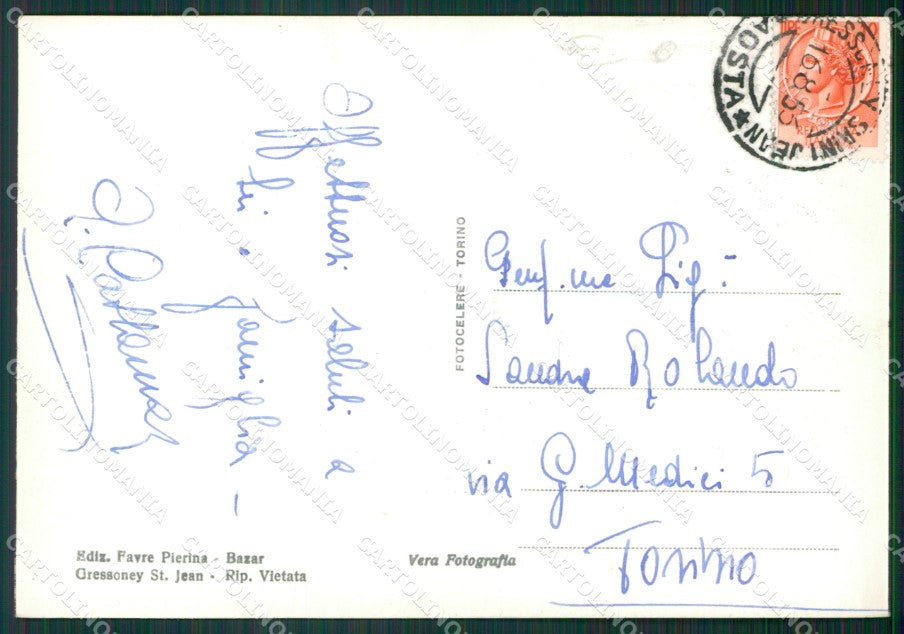 Affettuosi saluti a
Lei e famiglia -
FOTOCELERE - TORINO
Sig.
Sandra Rolando
via G. Medici 5
Torino
Ediz. Favre Pierina - Bazar
Gressoney St. Jean - Rip. Vietata
Vera Fotografia
GRESSONEY SAINT JEAN
AOSTA
16 8
LIRE
CARTOLINOMANIA